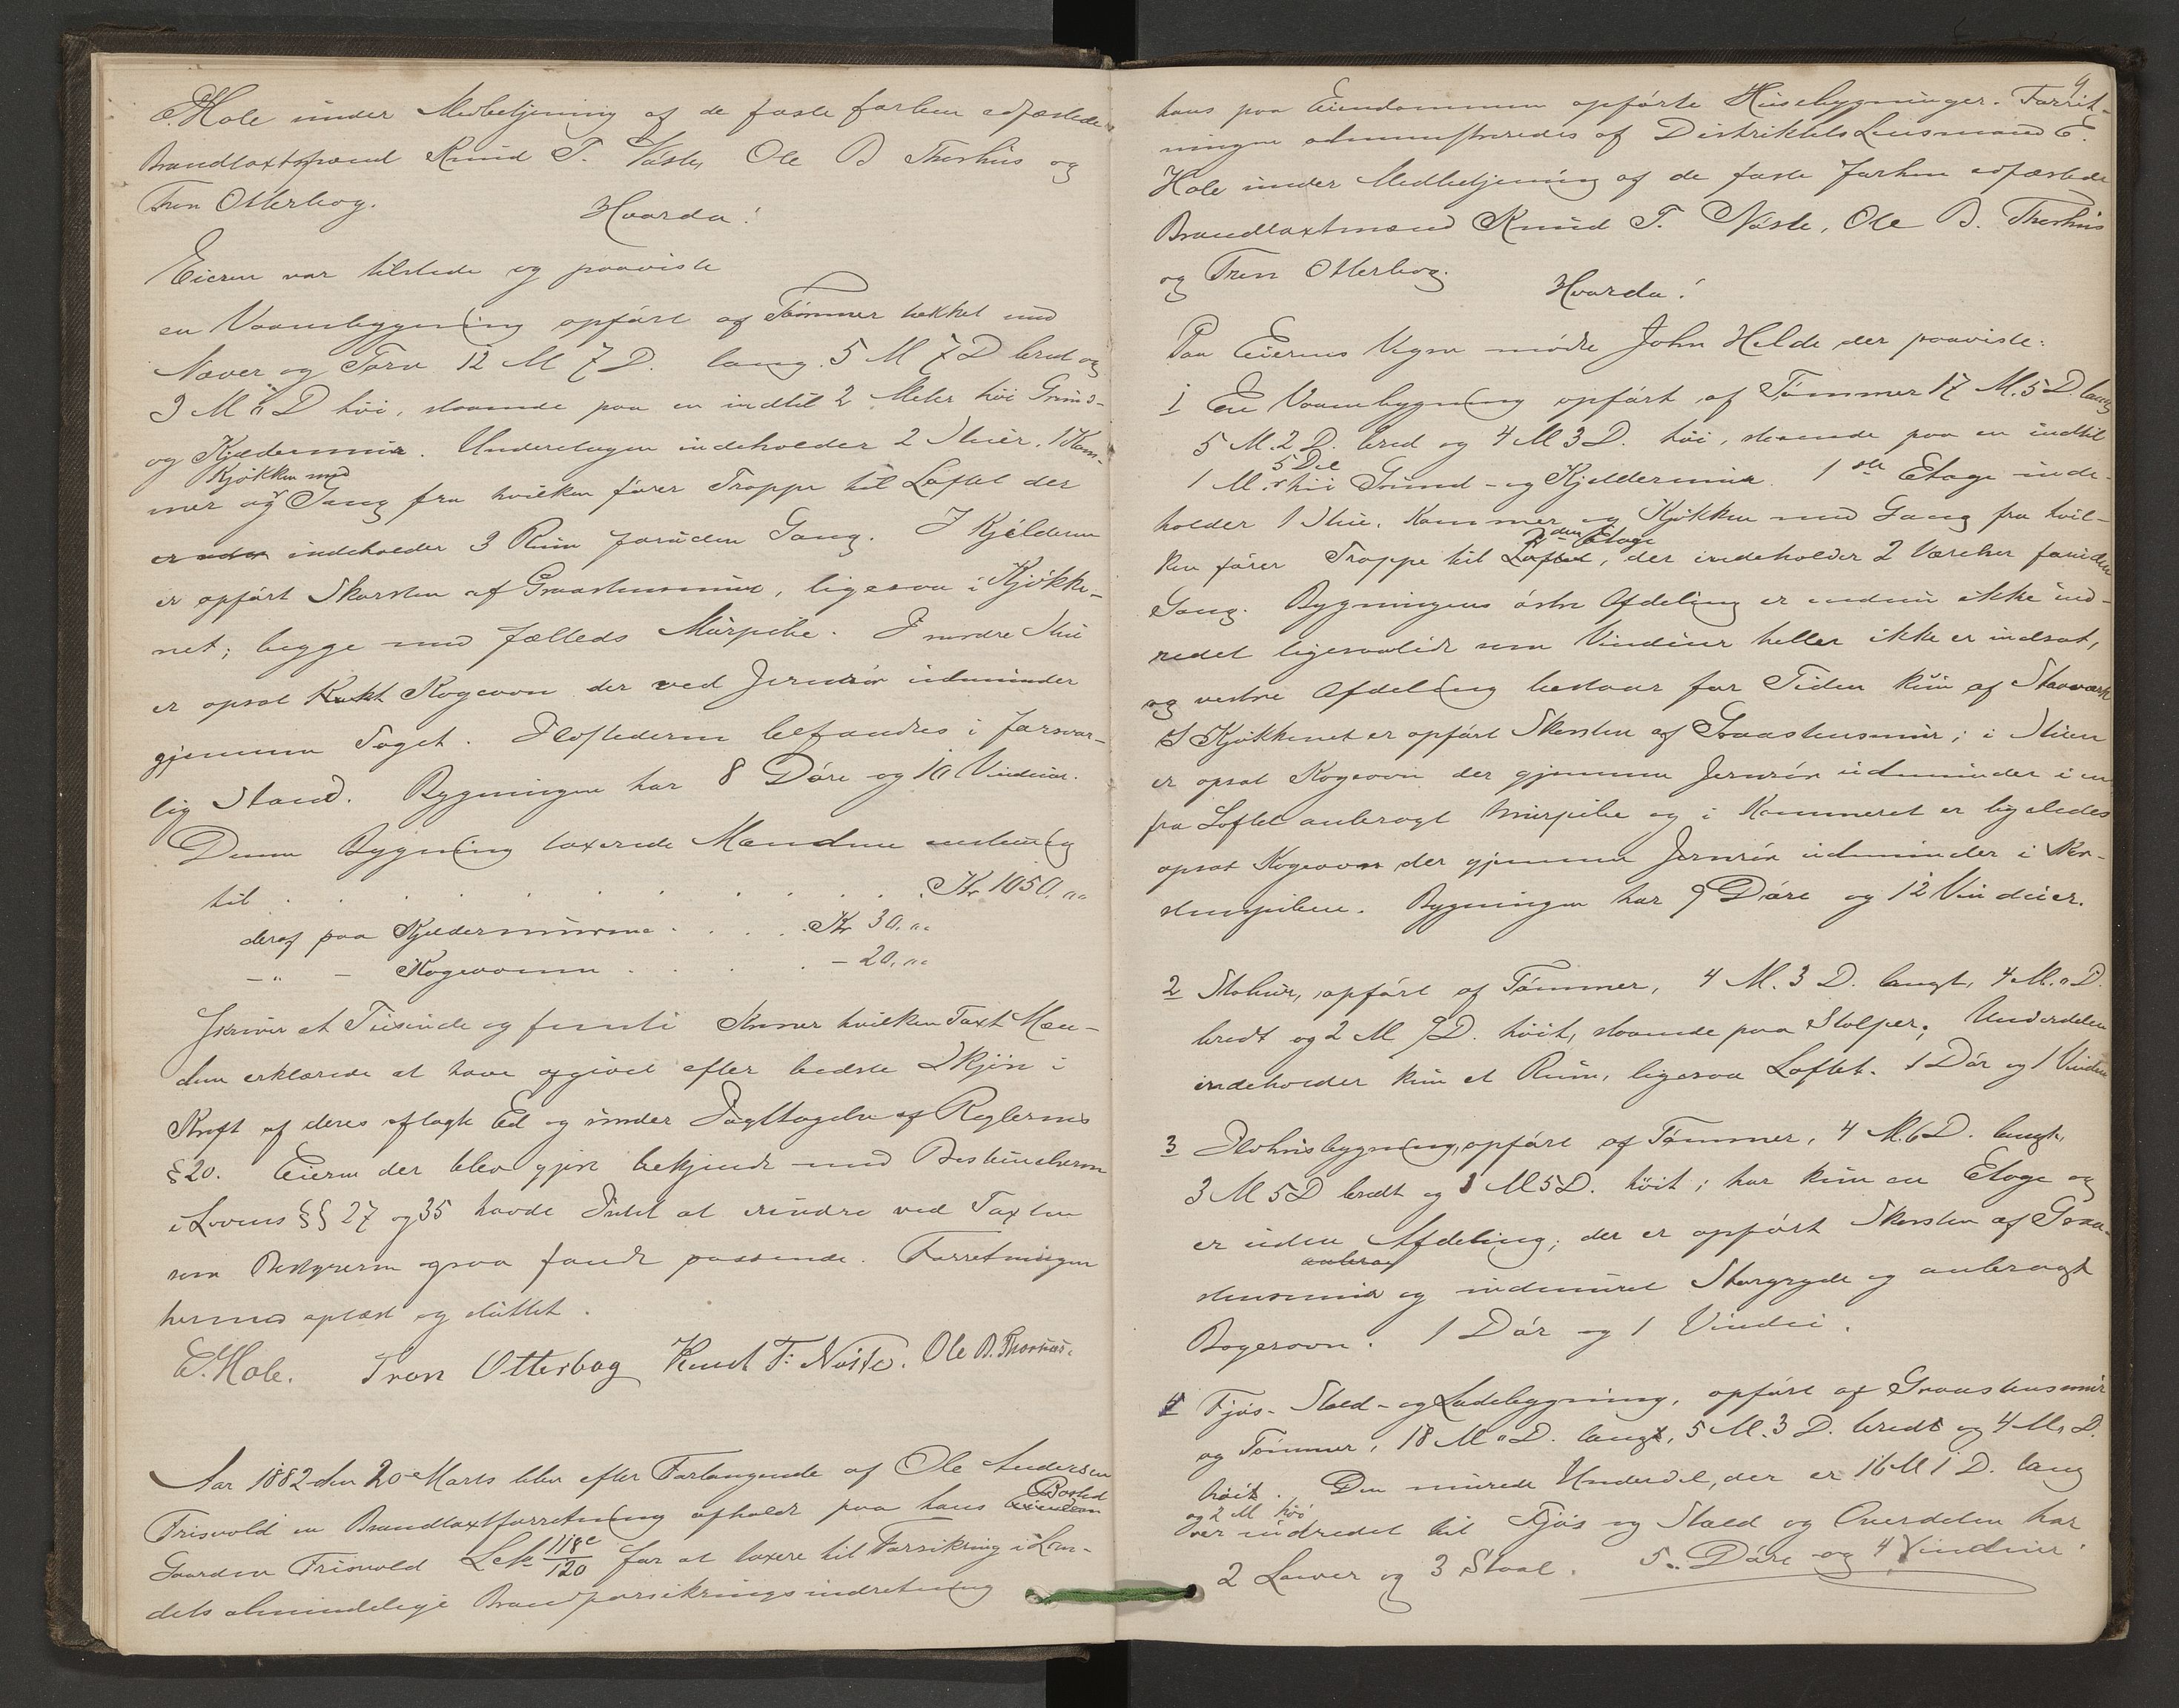 E. Hole under Medbetjening af de faste forhen edfæstede
Brandtaxtmænd Knud T. Nøste, Ole B Thorhus og
Tron Otterbog.
Hvorda!
Eieren var tilstede og paaviste
en Vaanebygning opført af Tømmer tækket med
Næver og Torv 12 M 7 D. lang. 5 M 7 D bred og
3 M " D høi, staaende paa en indtil 2 Meter høi Grund-
og Kjældermur. Underetagen indeholder 2 Stuer, 1 Kam-
Kjøkken med
mer og Gang fra hvilken fører Trappe til Loftet der
er indeholder 3 Rum foruden Gang. I Kjølderen
er opført Skorsten af Graastensmur, ligesaa i Kjøkke-
net; begge med fælleds Murpibe. I nordre Stue
er opsat Kakt Kogeovn der ved Jernrør udmunder
gjennem Taget. Ildstederne befandtes i forsvar-
lig Stand. Bygningen har 8 Døre og 10 Vinduer.
Denne Bygning taxerede Mændene enstemig
til . . . . . . . . . . Kr 1050. "
deraf paa Kjældermurene . . . . Kr 30. "
- " - Kogeovnen . . . . - 20. "
Skriver et Tusinde og femti Kroner hvilken Taxt Mæn-
dene erklærede at have afgivet efter bedste Skjøn i
Kraft af deres aflagte Ed og under Iagttagelse af Reglernes
§ 20. Eieren der blev gjort bekjendt med Bestemelserne
i Lovens §§ 27 og 35 havde Intet at erindre ved Taxten
som Bestyreren ogsaa fandt passende. Forretningen
hermed oplæst og sluttet.
E. Hole. Tron Otterbog Knud T. Nøste. Ole B. Thorhus.
Aar 1882 den 20de Marts blev efter Forlangende af Ole Andersen
Bosted
Frisvold en Brandtaxtforretning afholdt paa hans Eiendom
Gaarden Frisvold LNo 118c/120 for at taxere til Forsikring i Lan-
dets almindelige Brandforsikringsindretning
9
hans paa Eiendommen opførte Husebygninger. Forret-
ningen administreredes af Distriktets Lensmand E.
Hole under Medbetjening af de faste forhen edfæstede
Brandtaxtmænd Knud T. Nøste, Ole B. Thorhus
og Tron Otterbog.
Hvorda!
Paa Eierens Vegne mødte John Helde der paaviste:
1 En Vaanebygning opført af Tømmer 17 M. 5 D. lang
5 M. 2 D. bred og 4 M 3 D. høi, staaende paa en indtil
5 Del
1 M. høi Grund- og Kjeldermur. 1ste Etage inde-
holder 1 Stue, Kammer og Kjøkken med Gang fra hvil-
2den Etage
ken fører Trappe til Loftet, der indeholder 2 Værelser foruden
Gang. Bygningens østre Afdeling er endnu ikke ind-
redet ligesaalidt som Vinduer heller ikke er indsat,
og vestre Afdeling bestaar for Tiden kun af Stavværk
I Kjøkkenet er opført Skorsten af Graastensmur; i Stuen
er opsat Kogeovn der gjennem Jernrør udmunder i en
fra Loftet anbragt Murpibe og i Kammeret er ligeledes
opsat Kogeovn der gjennem Jernrør udmunder i Kor-
stenspiben. Bygningen har 9 Døre og 12 Vinduer.
2 Stabur, opført af Tømmer, 4 M. 3 D. langt, 4 M. " D.
bredt og 2 M 9 D. høit, staaende paa Stolper; Underdelen
indeholder kun et Rum, ligesaa Loftet. 1 Dør og 1 Vindu
3 Ildhusbygning, opført af Tømmer, 4 M. 6 D. langt,
3 M 5 D bredt og 3 M 5 D. høit; har kun en Etage og
er uden Afdeling; der er opført Skorsten af Graa-
anbrag
stensmur og indmuret Storgryde og anbragt
Bagerovn. 1 Dør og 1 Vindu.
4 Fjøs- Stald- og Ladebygning, opført af Graastensmur
og Tømmer, 18 M " D. langt, 5 M. 3 D. bredt og 4 M 1 D.
høit. Den murede Underdel, der er 16 M 1 D. lang
og 2 M høi
er indredet til Fjøs og Stald og Overdelen har
2 Laaver og 3 Staal. 5 Døre og 4 Vinduer.